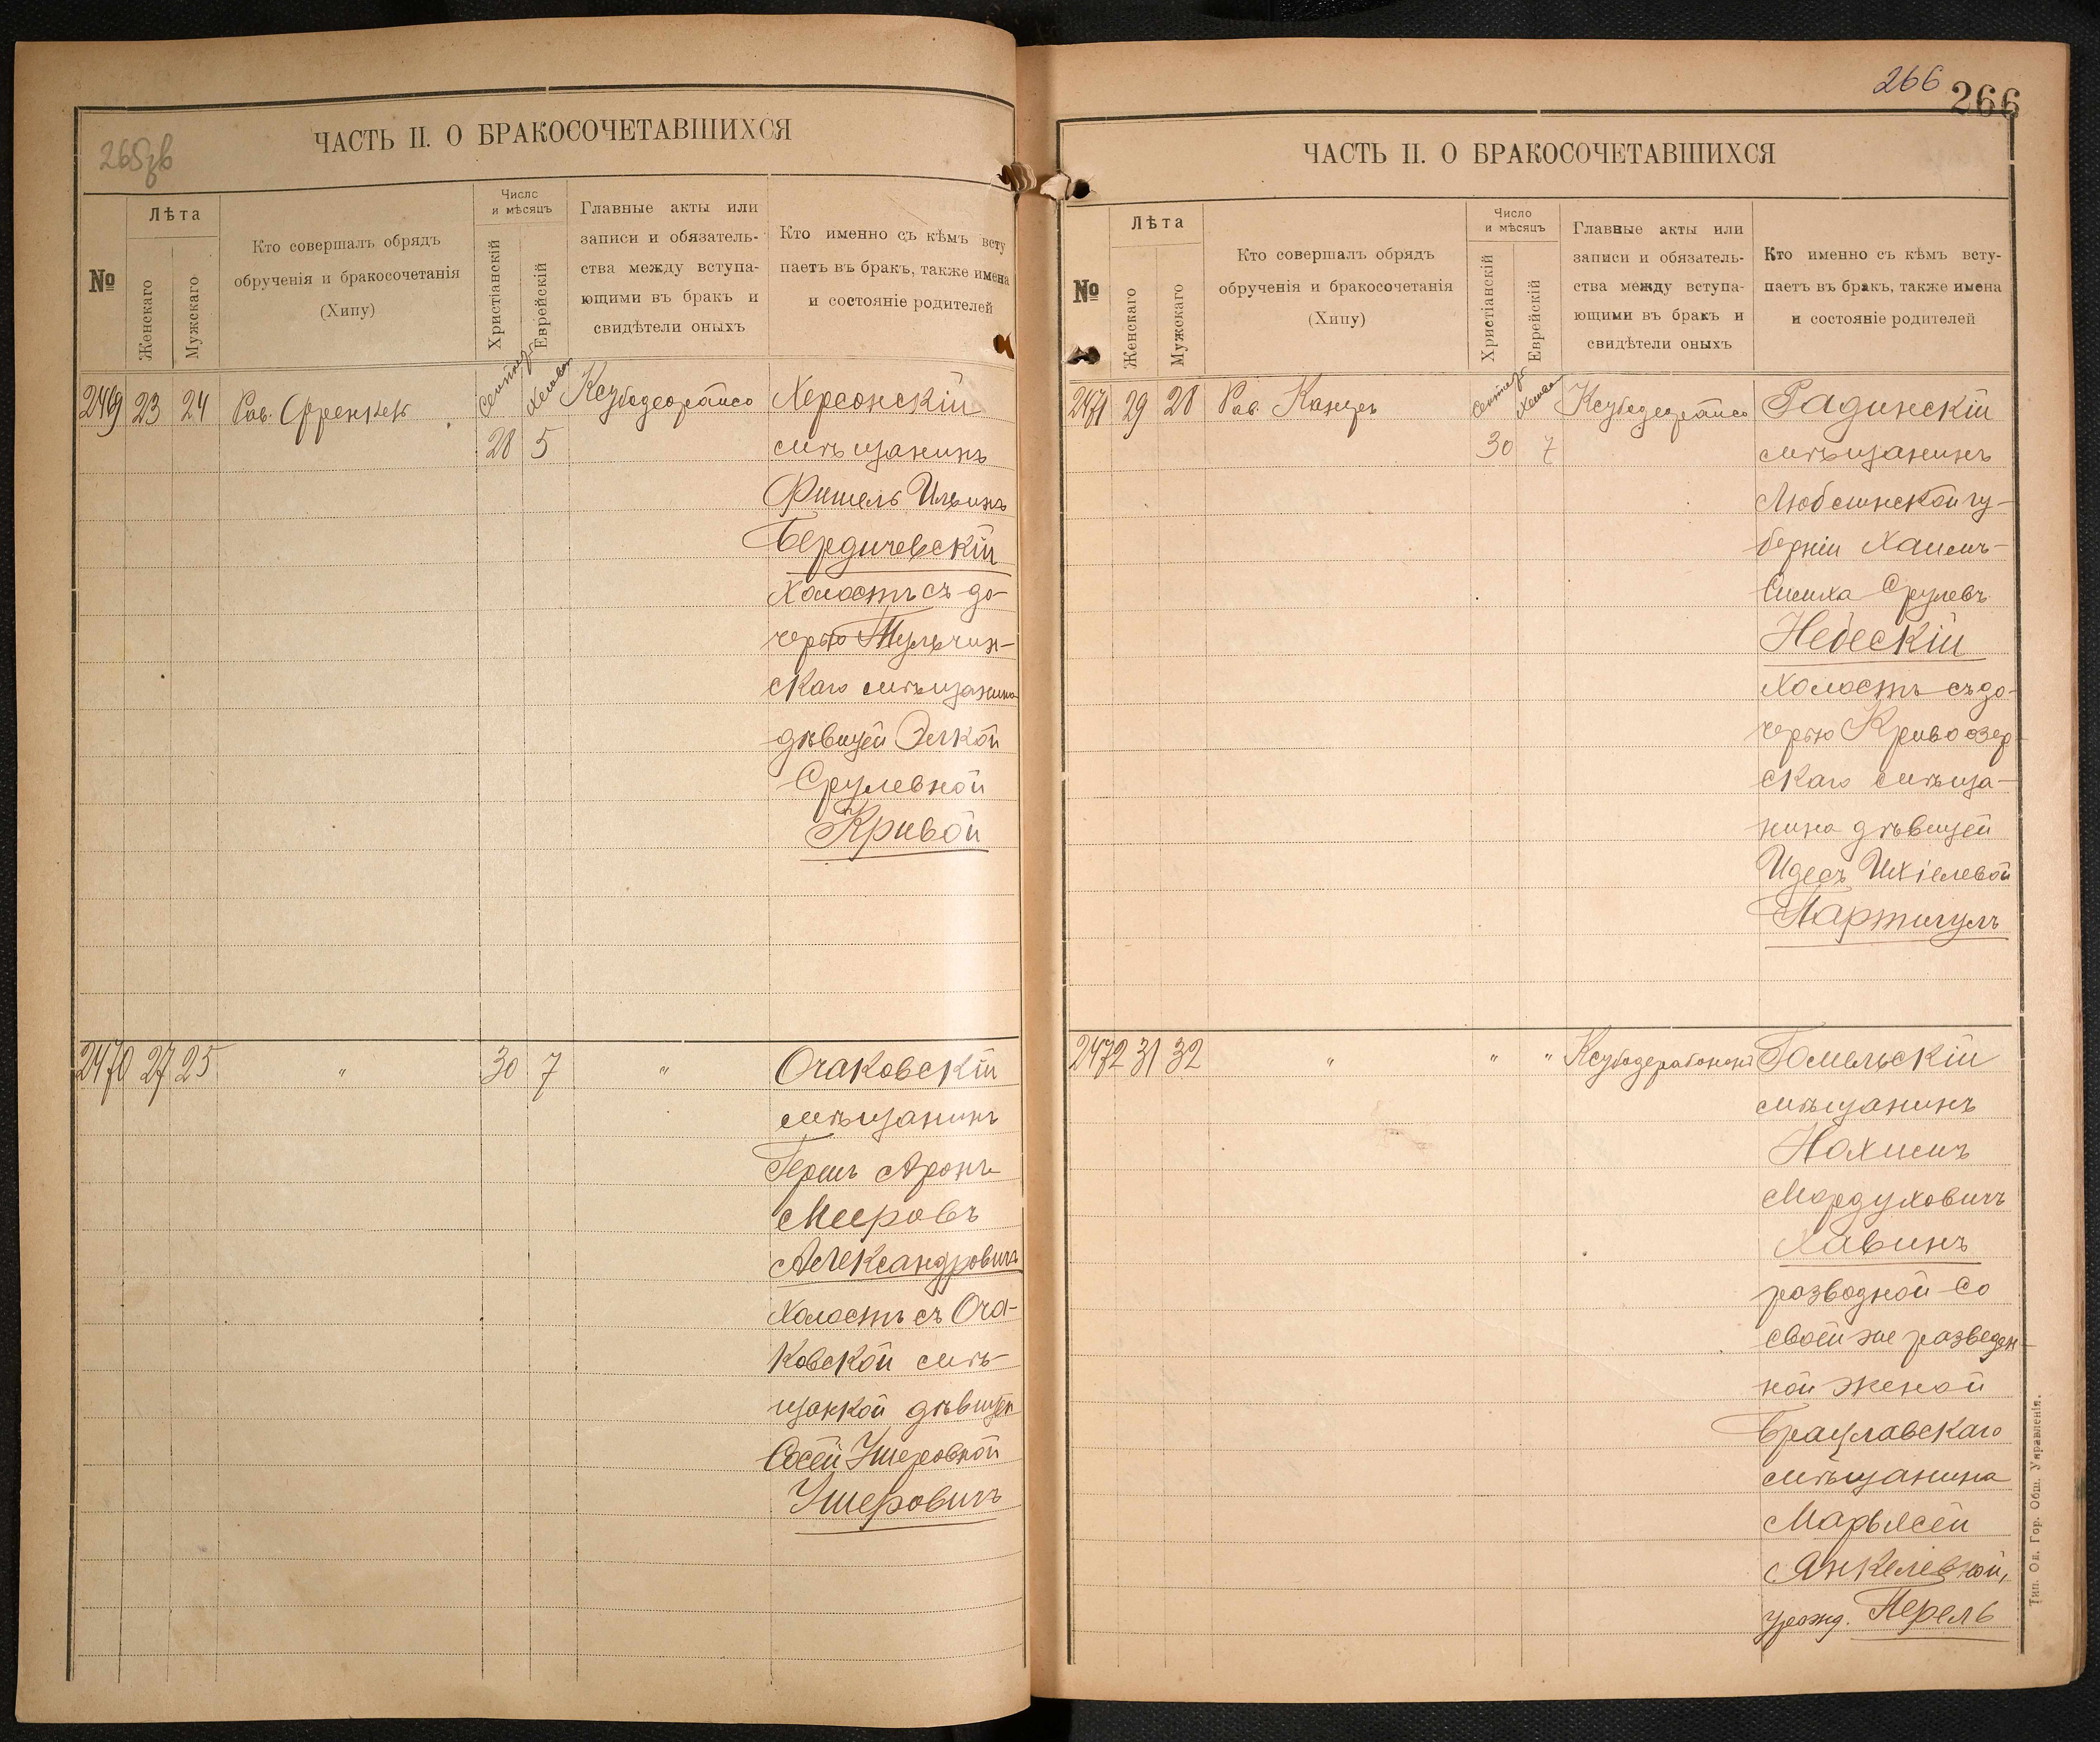 265зв
ЧАСТЬ II. О БРАКОСОЧЕТАВШИХСЯ
№
Лѣта
Женскаго
Мужскаго
Кто совершалъ обрядъ
обрученія и бракосочетанія
(Хипу)
Число
и мѣсяцъ
Христіанскій
Еврейскій
Главные акты или
записи и обязатель-
ства между вступа-
ющими въ бракъ и
свидѣтели оныхъ
Кто именно съ кѣмъ всту
паетъ въ бракъ, также имена
и состояніе родителей
2469 23 24 Рав. Френкель
28 5
Херсонскій
мѣщанинъ
Фишель Ильинъ
Бердичевскій
холостъ съ до-
черью Тульчин-
скаго мѣщанина
дѣвицей Элкой
Срулевной
Кривой
2470 27 25 " 30 7 " Очаковскій
мѣщанинъ
Гершъ Аронъ
Мееровъ
Александровичъ
холостъ съ Оча-
ковской мѣ-
щанкой дѣвицей
Сосей Ушеровной
Ушеровичъ
266
266
ЧАСТЬ II. О БРАКОСОЧЕТАВШИХСЯ
№
Лѣта
Женскаго
Мужскаго
Кто совершалъ обрядъ
обрученія и бракосочетанія
(Хипу)
Число
и мѣсяцъ
Христіанскій
Еврейскій
Главные акты или
записи и обязатель-
ства между вступа-
ющими въ бракъ и
свидѣтели оныхъ
Кто именно съ кѣмъ всту-
паетъ въ бракъ, также имена
и состояніе родителей
2471 29 28 Рав. Канцеръ
30 7
Радинскій
мѣщанинъ
Люблинской гу-
берніи Хаимъ-
Симха Срулевъ
Небескій
холостъ съ до-
черью Кривоозер-
скаго мѣща-
нина дѣвицей
Идесъ Ихіелевой
2472 31 32 " " " Гомельскій
мѣщанинъ
Нохимъ
Мордуховичъ
Хавинъ
разводной со
своей же разведен-
ной женой
Брацлавскаго
мѣщанина
Марьясей
Янкелевной,
урожд. Перель
Тип. Од. Гор. Общ. Управленія.